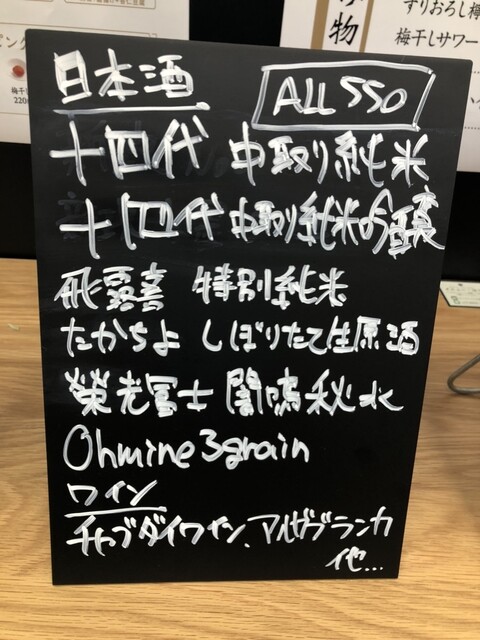 すりおろし檸
物
梅干しサワー
日本酒
ALL 550
十四代 中取り純米
十四代 中取り純米吟醸
飛露喜 特別純米
たかちよ しぼりたて生原酒
栄光冨士 闇鳴秋水
Ohmine 3grain
ワイン
チャブダイワイン、アルガブランカ
他...